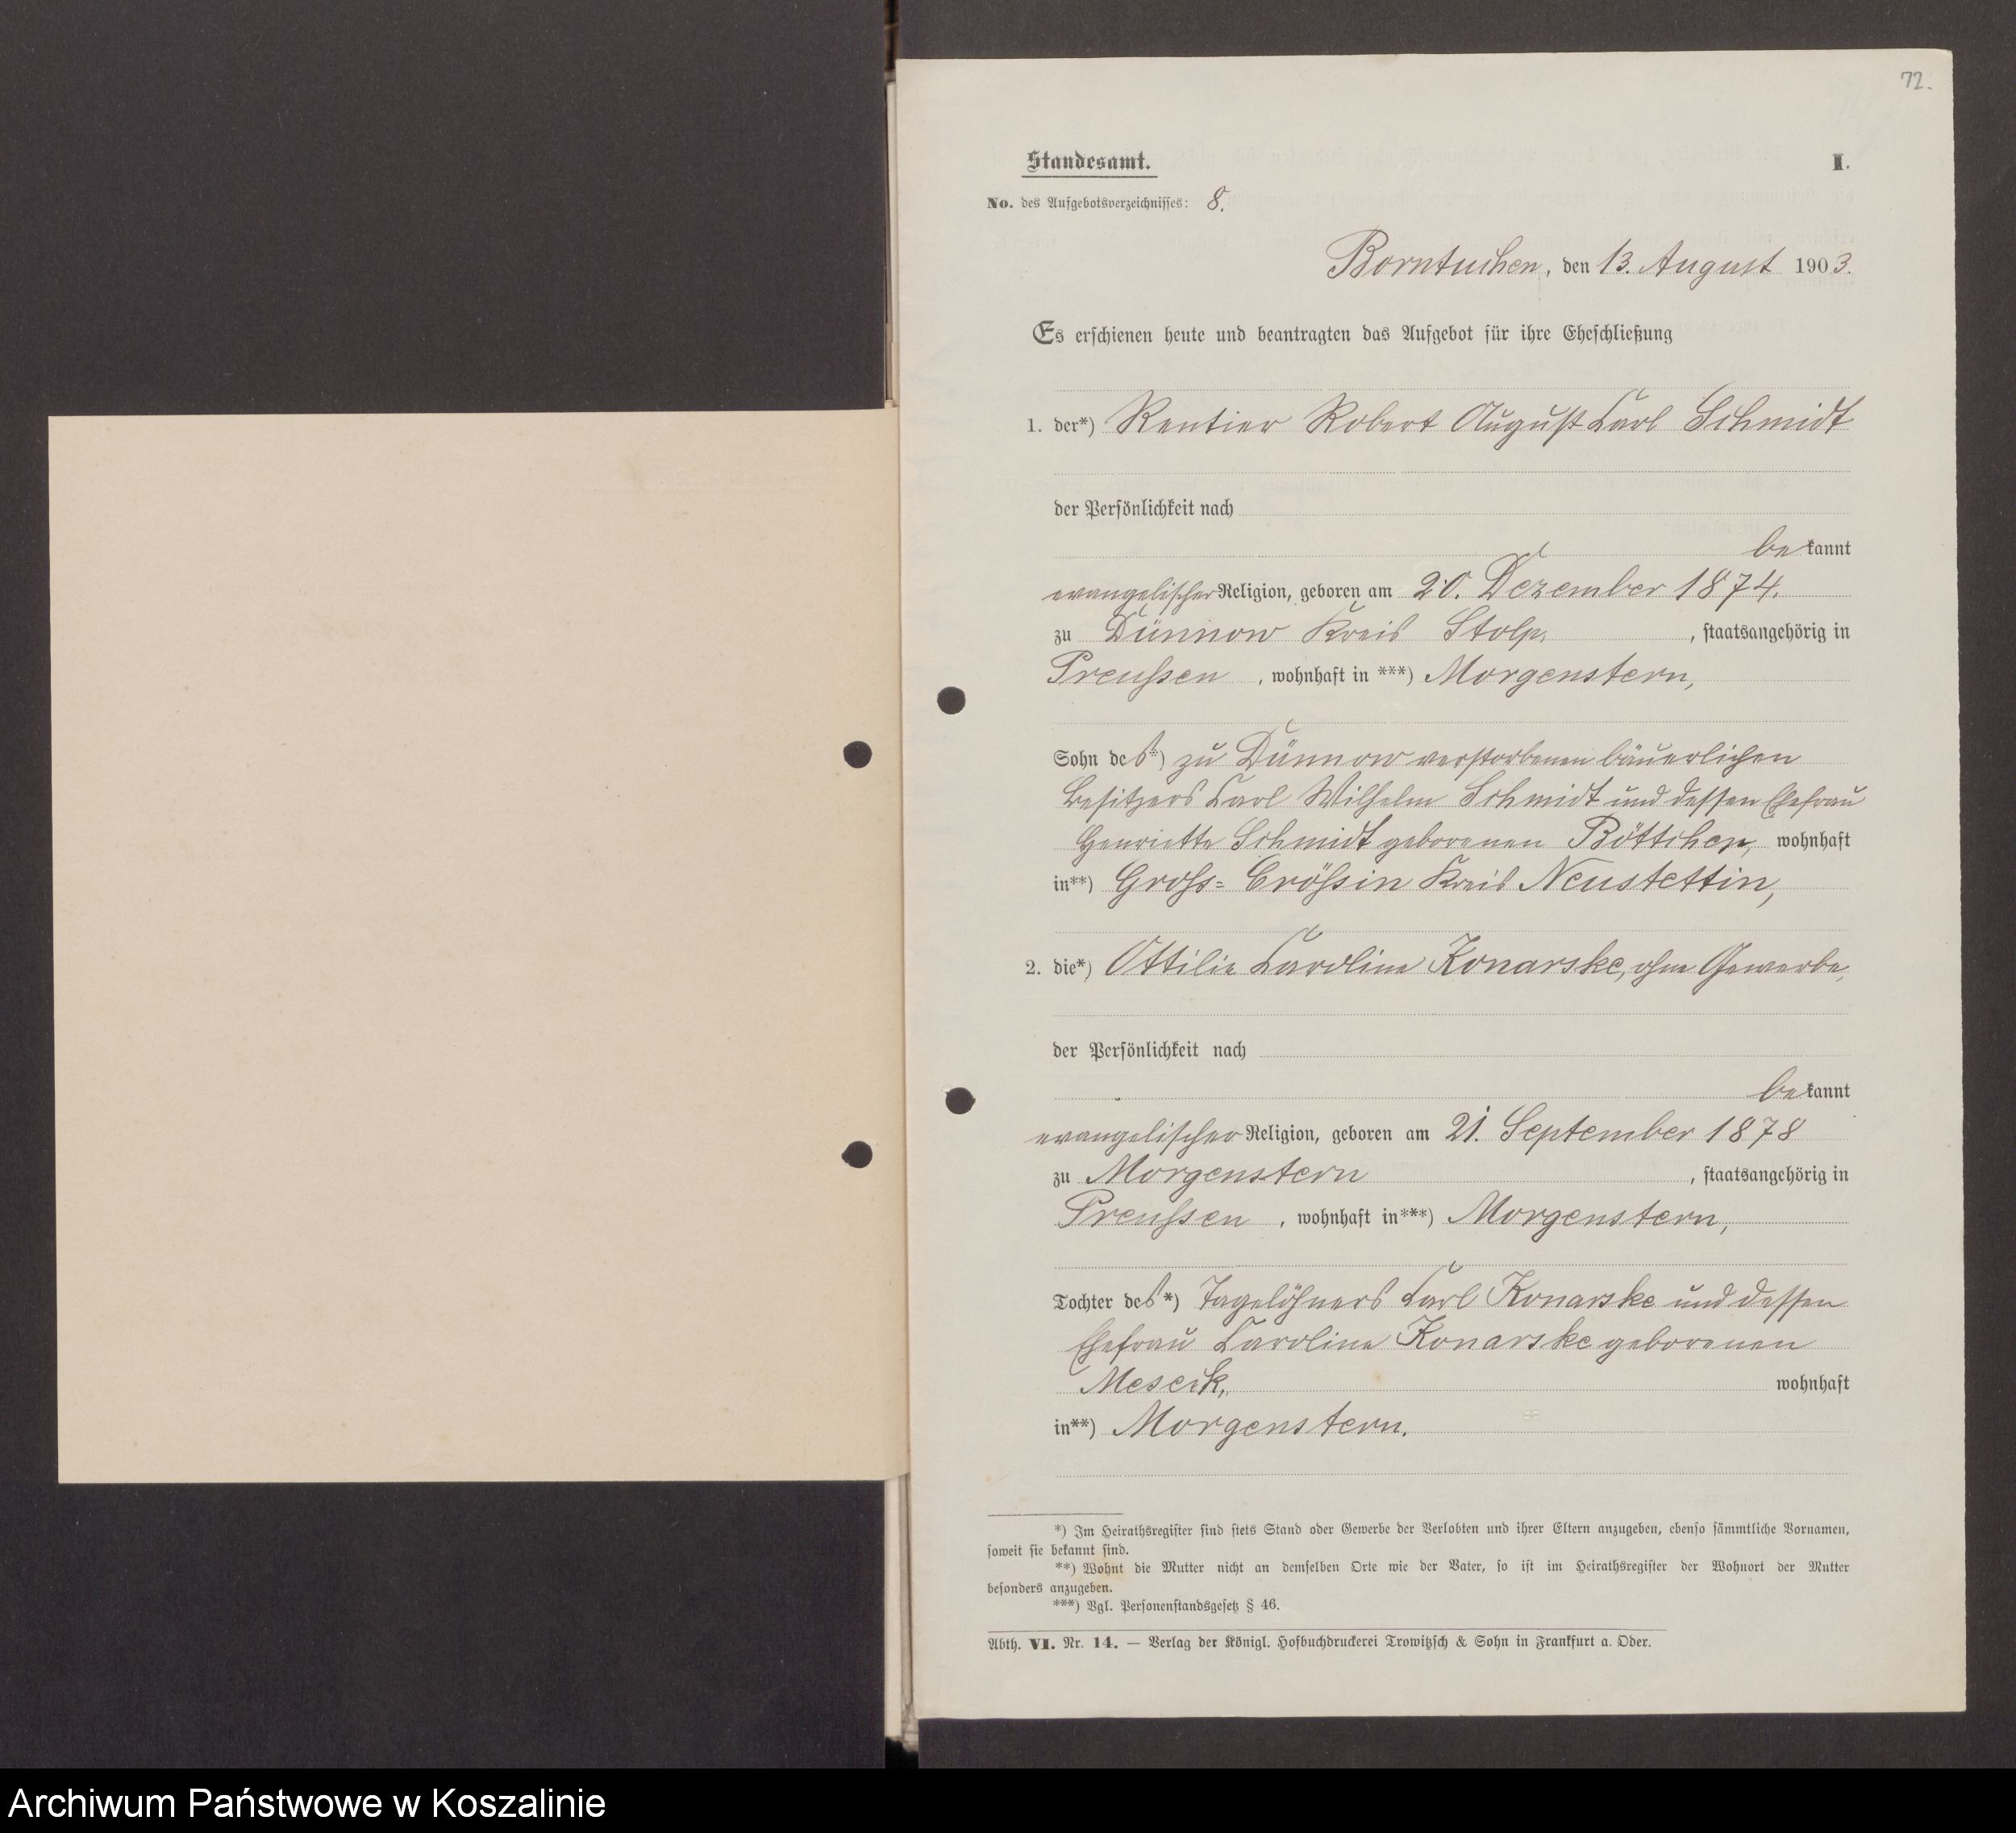 72.
Standesamt.
I.
No. des Aufgebotsverzeichnisses: 8.
Borntuchen, den 13. August 1903.
Es erschienen heute und beantragten das Aufgebot für ihre Eheschließung
1. der*) Rentier Robert August Carl Schmidt
der Persönlichkeit nach
be kannt
evangelischer Religion, geboren am 20. Dezember 1874.
zu Dünnow Kreis Stolp. , staatsangehörig in
Preußen , wohnhaft in ***) Morgenstern,
Sohn des*) zu Dünnow verstorbenen bäuerlichen
Besitzers Carl Wilhelm Schmidt und dessen Ehefrau
Henriette Schmidt geborenen Böttcher, wohnhaft
in**) Gross= Crößin Kreis Neustettin,
2. die*) Ottilie Caroline Konarske, ohne Gewerbe,
der Persönlichkeit nach
be kannt
evangelischer Religion, geboren am 21. September 1878
zu Morgenstern , staatsangehörig in
Preußen , wohnhaft in***) Morgenstern,
Tochter des*) Tagelöhners Carl Konarske und dessen
Ehefrau Caroline Konarske geborenen
Meseck, wohnhaft
in**) Morgenstern.
*) Im Heirathsregister sind stets Stand oder Gewerbe der Verlobten und ihrer Eltern anzugeben, ebenso sämmtliche Vornamen,
soweit sie bekannt sind.
**) Wohnt die Mutter nicht an demselben Orte wie der Vater, so ist im Heirathsregister der Wohnort der Mutter
besonders anzugeben.
***) Vgl. Personenstandsgesetz § 46.
Abth. VI. Nr. 14. — Verlag der Königl. Hofbuchdruckerei Trowitzsch & Sohn in Frankfurt a. Oder.
Archiwum Państwowe w Koszalinie